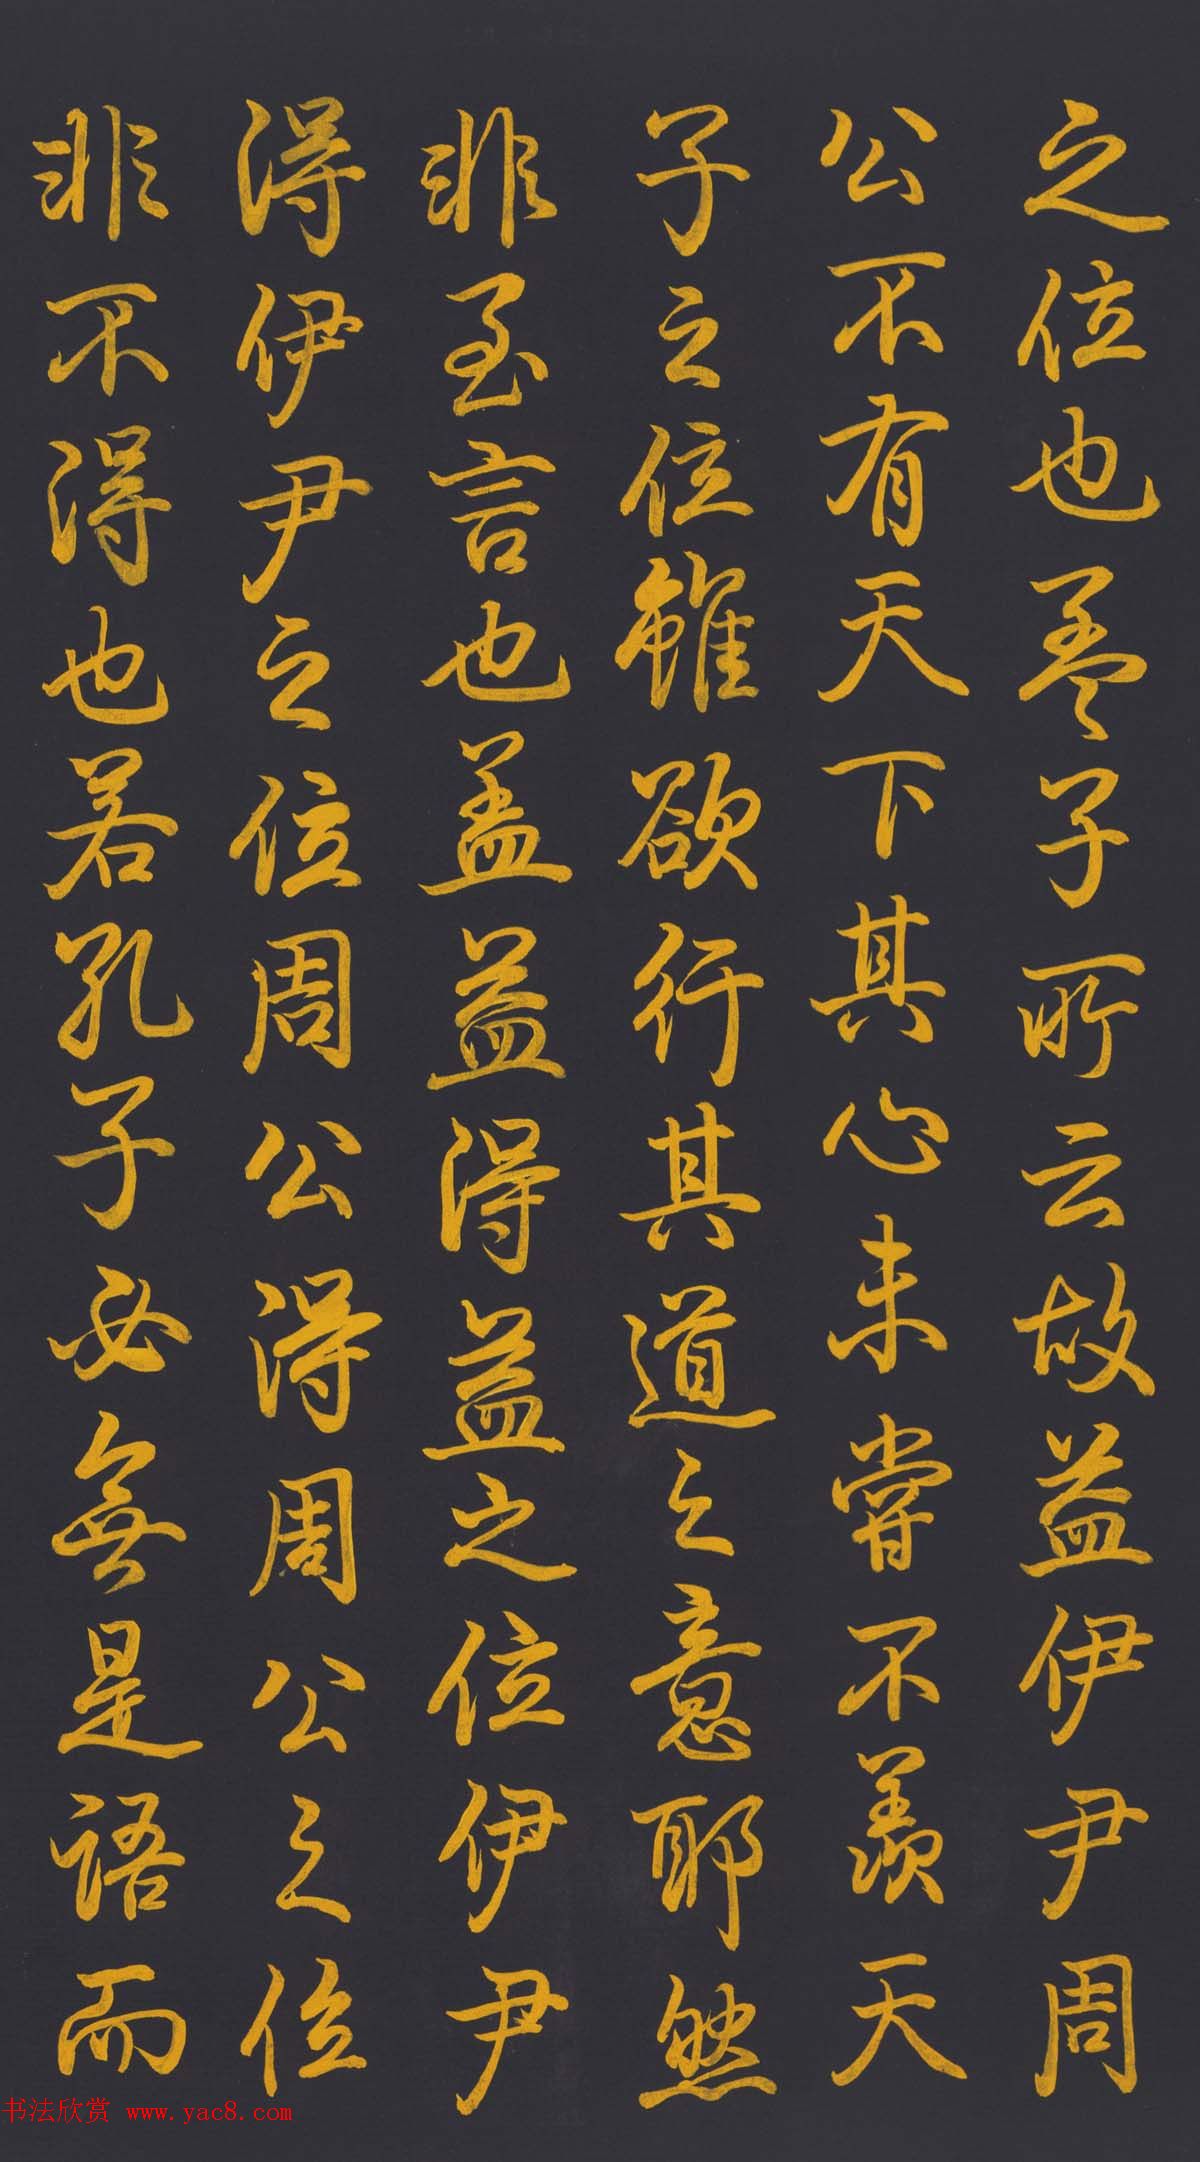 之位也孟子所云故益伊尹周
公不有天下其心未嘗不羨天
子之位雖欲行其道之意耶然
非至言也蓋益得益之位伊尹
得伊尹之位周公得周公之位
非不得也若孔子必無是語而
书法欣赏 www.yac8.com